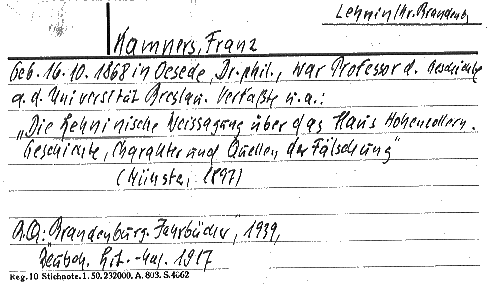 Lehnin/Kr. Brandenb
Kampers, Franz
Geb. 16.10.1868 in Oesede, Dr. phil., war Professor d. Geschichte
a. d. Universität Breslau. Verfaßte u. a.:
„Die Lehninische Weissagung über das Haus Hohenzollern.
Geschichte, Charakter und Quellen der Fälschung"
(Münster, 1897)
A.Q.: Brandenburg. Jahrbücher, 1939,
Deutsch. Lit.-Kal. 1917
Reg. 10 Stichnote. 1. 50. 232000. A. 803. S. 4662